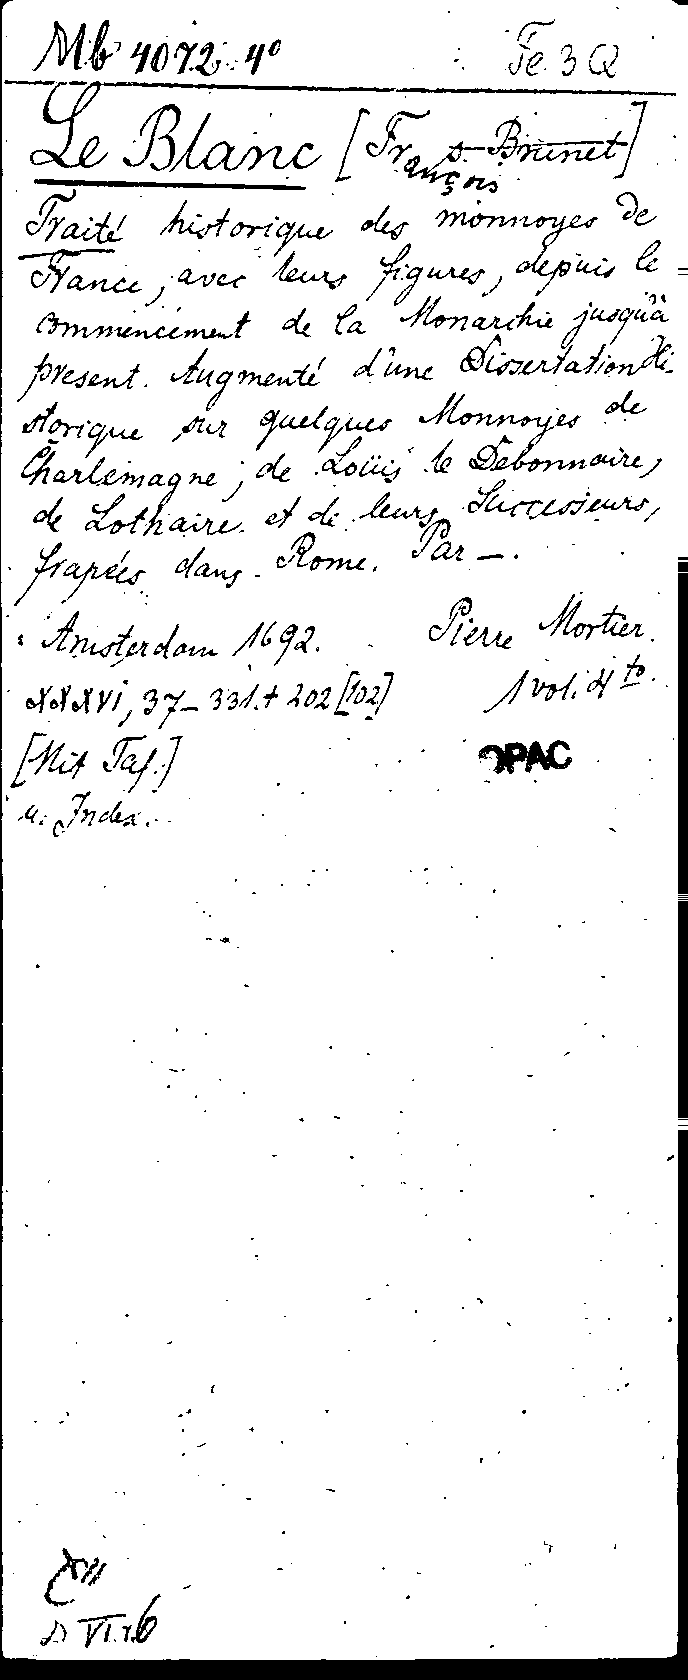 Mb 4072 4° Fe 3 Q
Le Blanc [François s. Brunet]
Traité historique des monnoyes de
France, avec leurs figures, depuis le
commencement de la Monarchie jusqu'à
present. Augmenté d'une Dissertation Hi-
storique sur quelques Monnoyes de
Charlemagne, de Loüis le Debonnaire,
de Lothaire et de leurs Successeurs,
frapées dans Rome. Par —.
Amsterdam 1692. Pierre Mortier.
XXXVI, 37-331.+ 202 [102] 1 vol. 4to.
[Mit Taf.] OPAC
u. Index.
VI.